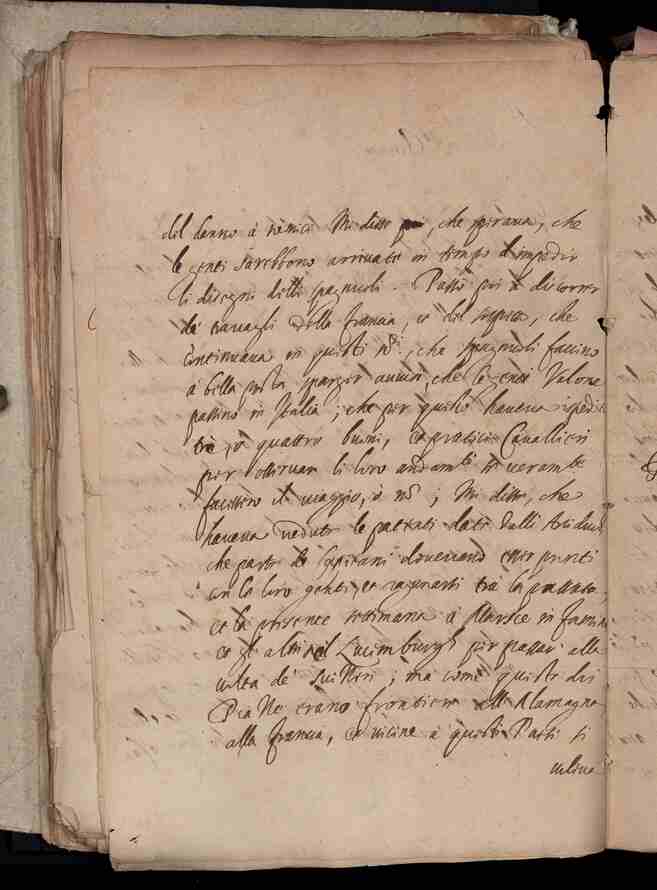 del danno à nemici. Mi disse poi, che sperava, che
le genti sarebbono arrivate in tempo d'impedir
li disegni delli spagnuoli. Passò poi à discorrer
de' travagli della francia, et del sospetto, che
continuava in questi
à bella posta sparger avvisi, che le genti Valone
passino in Italia; che per questo haveva spedit
trè, ò quattro buoni, et pratici Cavallieri
per osservar li loro andamti se veramte
facessero il viaggio, ò nò; Mi disse, che
haveva vedute le patenti date dalli Arciduc
che parte de Capitani dovevano esser pronti
con le loro genti, et ragunarsi trà la passata,
et la presente settimana à Marsce in famin
et gli altri nel Lucemburgh per passar alla
volta de' Suizzeri; mà come queste dui
Piazze erano frontiere all'Alamagna
alla francia, et vicine à questi Paesi si